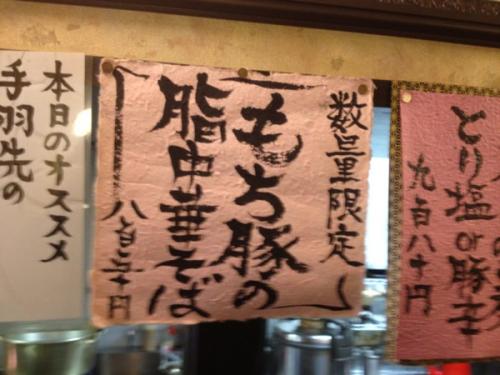 本日のオススメ
手羽先の
数量限定
「もち豚の
脂中華そば」
八百五十円
とり塩or豚
九百八十円